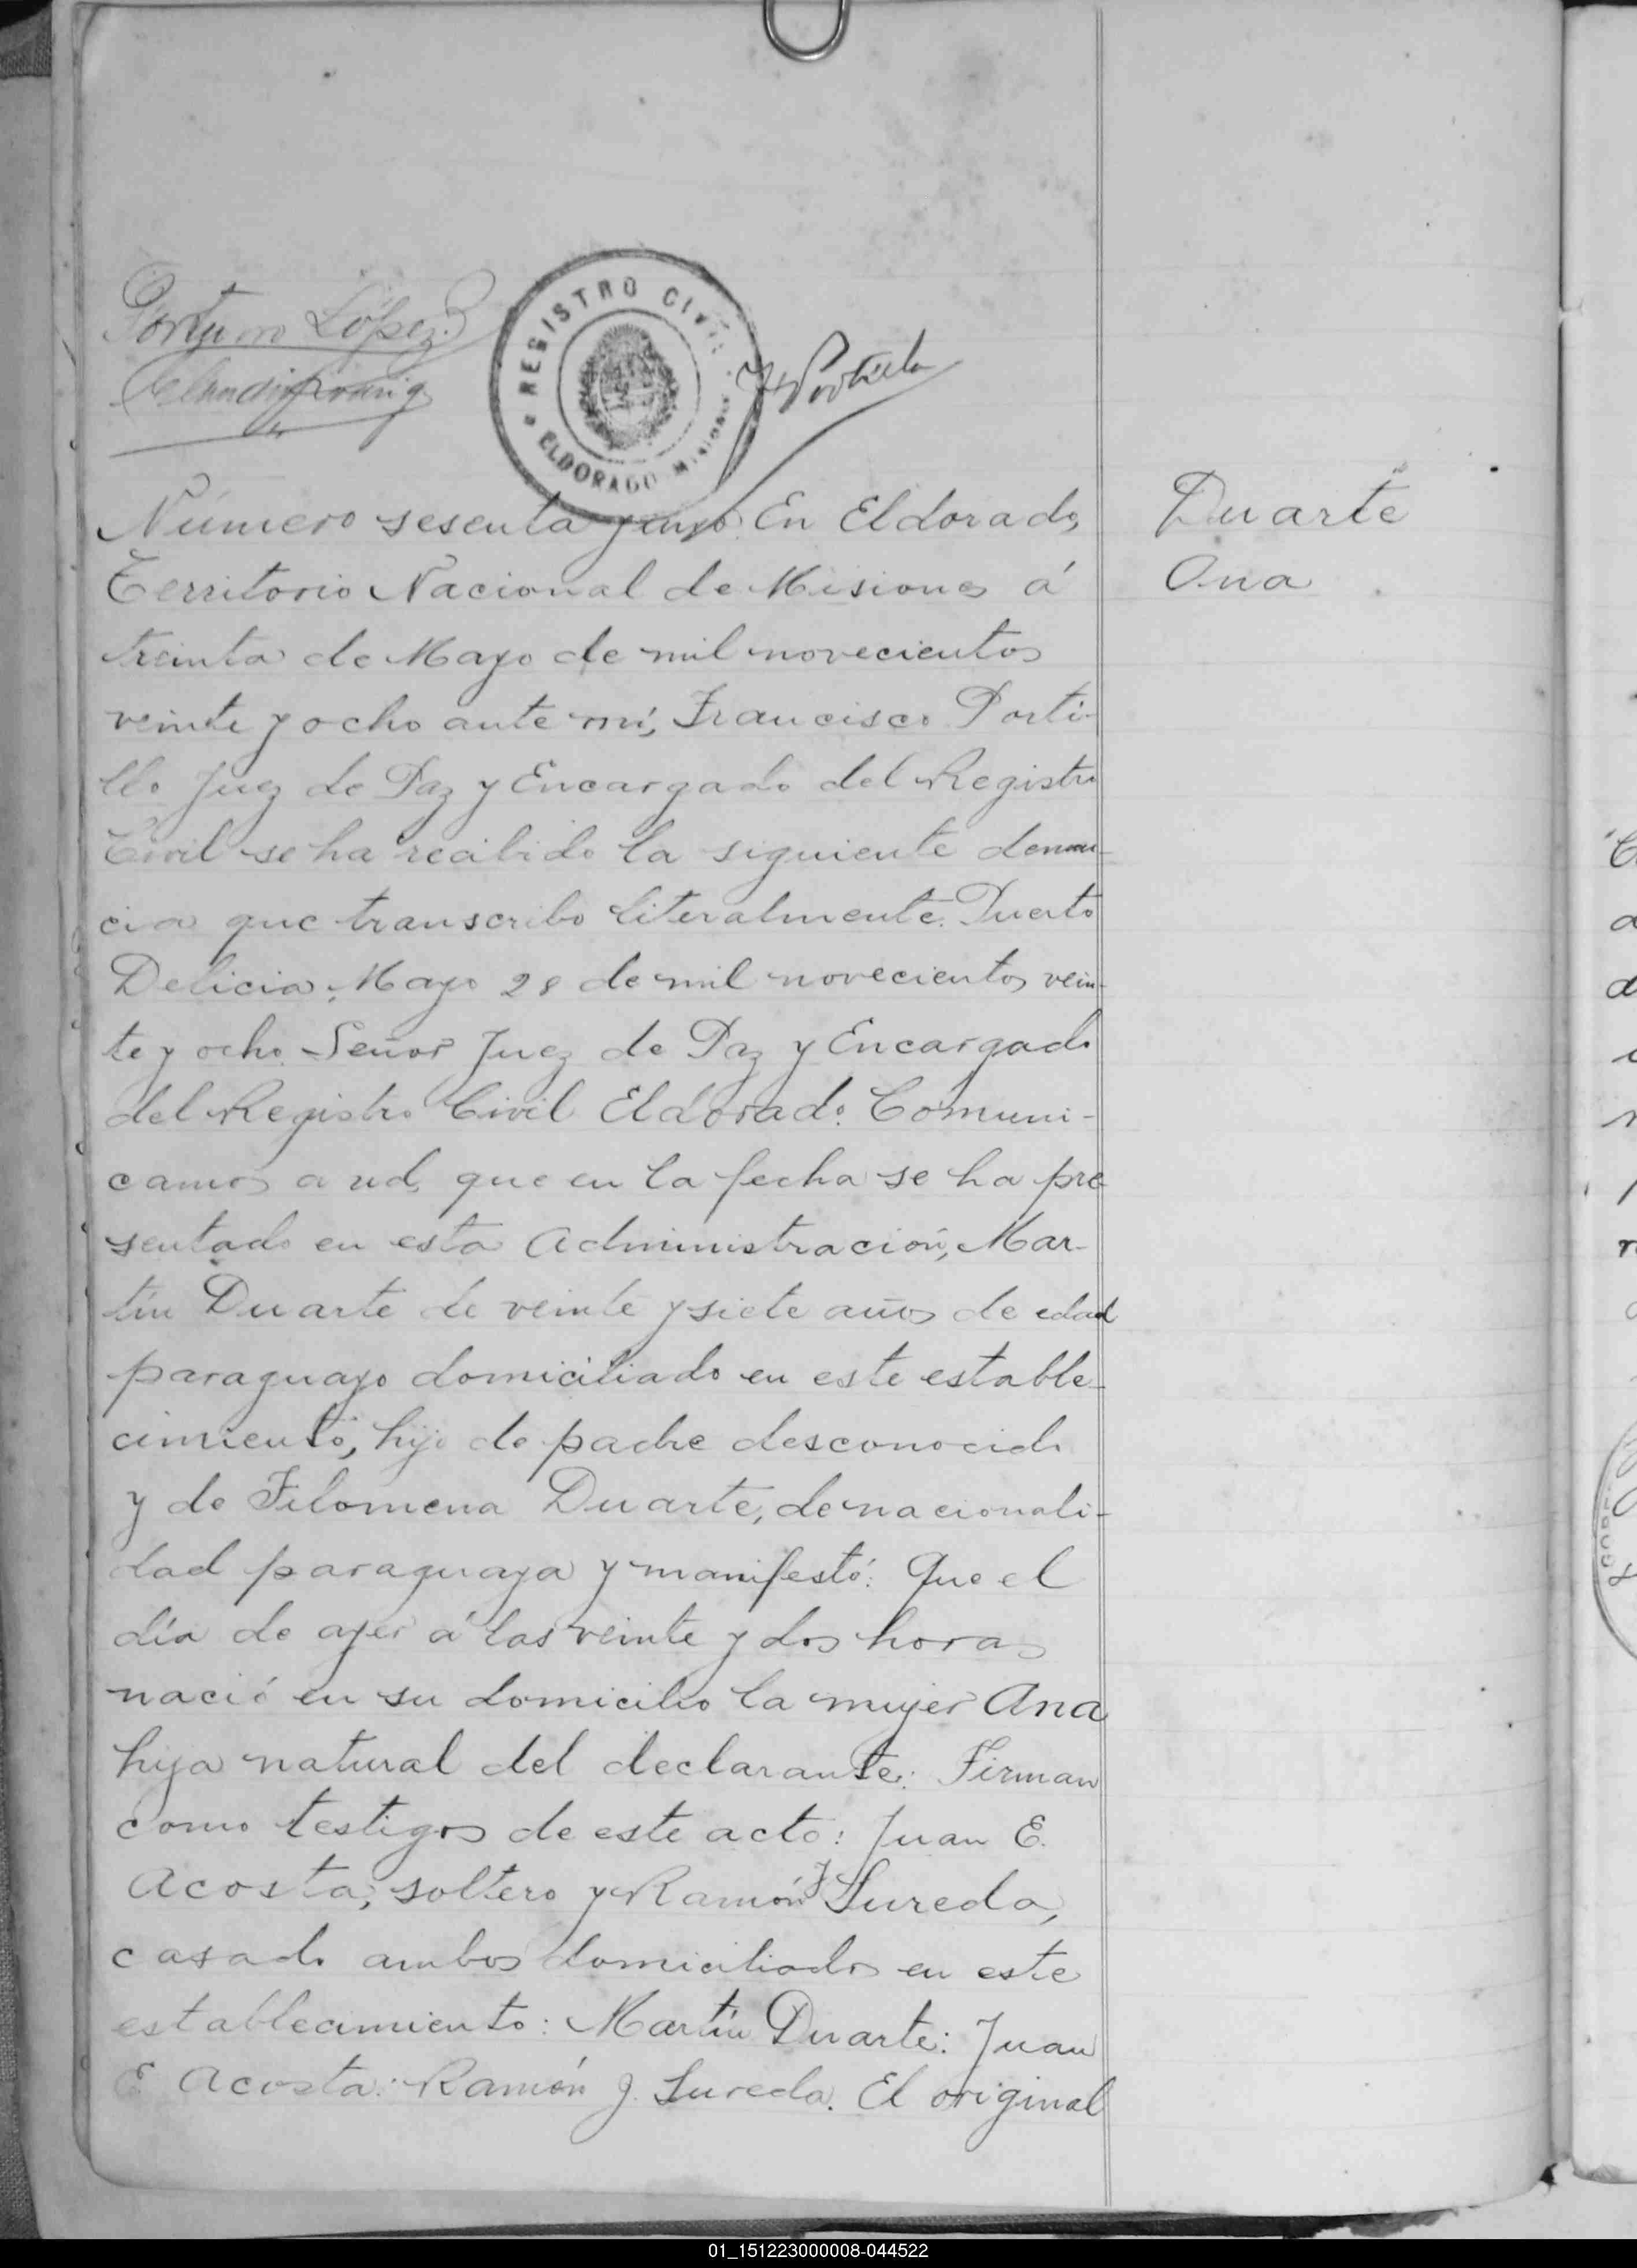 López
REGISTRO CIVIL
ELDORADO MISIONES
Número sesenta y uno. En Eldorado,
Territorio Nacional de Misiones á
treinta de Mayo de mil novecientos
veinte y ocho ante mí, Francisco Porti-
llo Juez de Paz y Encargado del Registro
Civil se ha recibido la siguiente denun-
cia que transcribo literalmente: Puerto
Delicia, Mayo 28 de mil novecientos vein-
te y ocho. Señor Juez de Paz y Encargado
del Registro Civil Eldorado. Comuni-
camos a ud, que en la fecha se ha pre
sentado en esta Administración, Mar-
tín Duarte de veinte y siete años de edad
paraguayo domiciliado en este estable-
cimiento, hijo de padre desconocido
y de Filomena Duarte, de nacionali-
dad paraguaya y manifestó: Que el
día de ayer á las veinte y dos horas
nació en su domicilio la mujer Ana
hija natural del declarante: Firman
como testigos de este acto: Juan E.
Acosta, soltero y Ramón J Sureda,
casado ambos domiciliados en este
establecimiento: Martín Duarte: Juan
E Acosta: Ramón J. Sureda. El original
Duarte
Ana
01_151223000008-044522